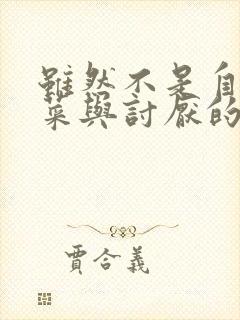 雖然不是自
菜與討厭的
賈合義